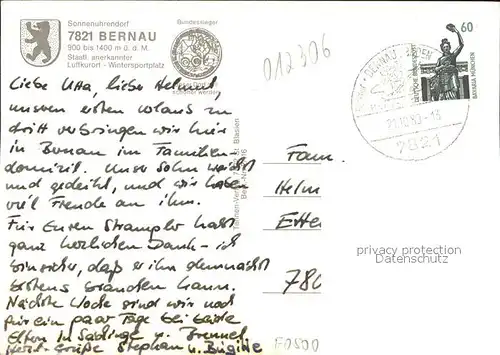 Sonnenuhrendorf
7821 BERNAU
900 bis 1400 m ü. d. M.
Staatl. anerkannter
Luftkurort - Wintersportplatz
Bundessieger
schöner werden
012306
60
DEUTSCHE BUNDESPOST
BAVARIA MÜNCHEN
7821
Liebe Utta, lieber Helmut,
unseren ersten Urlaub zu
dritt verbringen wir hier
in Bernau im Familien-
domizil. Unser Sohn wächst
und gedeiht, und wir haben
viel Freude an ihm.
Für Euren Strampler habt
ganz herzlichen Dank - ich
bin sicher, daß er ihn demnächst
brauchen kann.
Nächste Woche sind wir noch
für ein paar Tage bei beide
Eltern in u.
Herzl. Grüße Stephan u. Brigitte
Fam.
Helm
Ette
780
privacy protection
Datenschutz
F0500